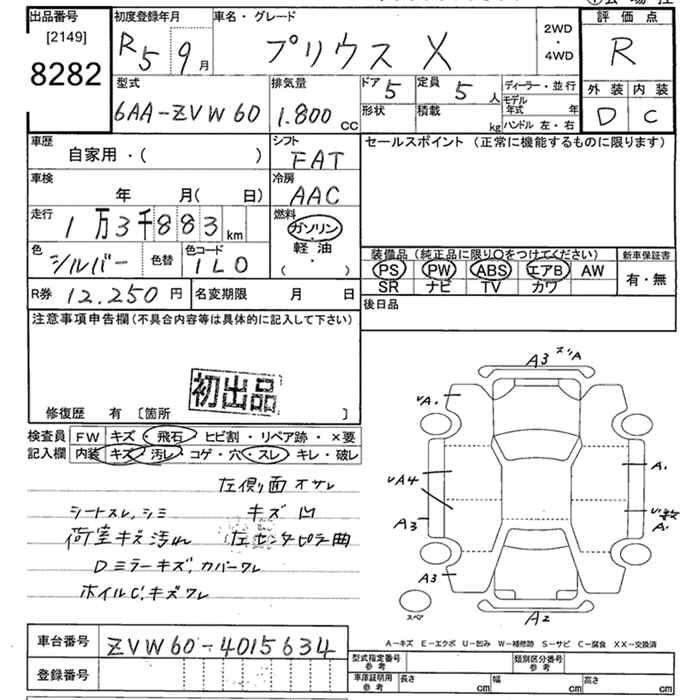 出品番号
[2149]
8282
初度登録年月
R5 9月
車名・グレード
プリウス X
2WD
・
4WD
評価点
R
外装 内装
D C
型式
6AA-ZVW60
排気量
1.800 CC
ドア 5
定員 5 人
形状
積載 kg
ディーラー・並行
モデル年式 年
ハンドル 左・右
車歴
自家用・( )
シフト
FAT
車検
年 月( 日)
冷房
AAC
走行
1万3千883km
燃料
ガソリン
軽・油
( ・ )
色
シルバー
色替
色コード
1L0
R券 12.250円
名変期限 月 日
セールスポイント (正常に機能するものに限ります)
装備品 (純正品に限り○をつけてください)
PS PW ABS エアB AW
SR ナビ TV カワ
新車保証書
有・無
後日品
注意事項申告欄(不具合内容等は具体的に記入して下さい)
初出品
修復歴 有 [箇所 ]
検査員記入欄
FW キズ・飛石・ヒビ割・リペア跡・×要
内装 キズ・汚レ・コゲ・穴・スレ・キレ・破レ
左側面 オサレ
シートスレ、シミ キズ凹
荷室キズ汚れ 左センタピラー曲
Dミラーキズ、カバーワレ
ホイルC、キズワレ
A3
A1
A3
A3
A1
A2
スペア
A-キズ E-エクボ U-凹み W-補修跡 S-サビ C-腐食 XX-交換済
車台番号 ZVW60-4015634
登録番号
型式指定番号
参考
類別区分番号
参考
車庫証明用
参考
長さ cm
幅 cm
高さ cm